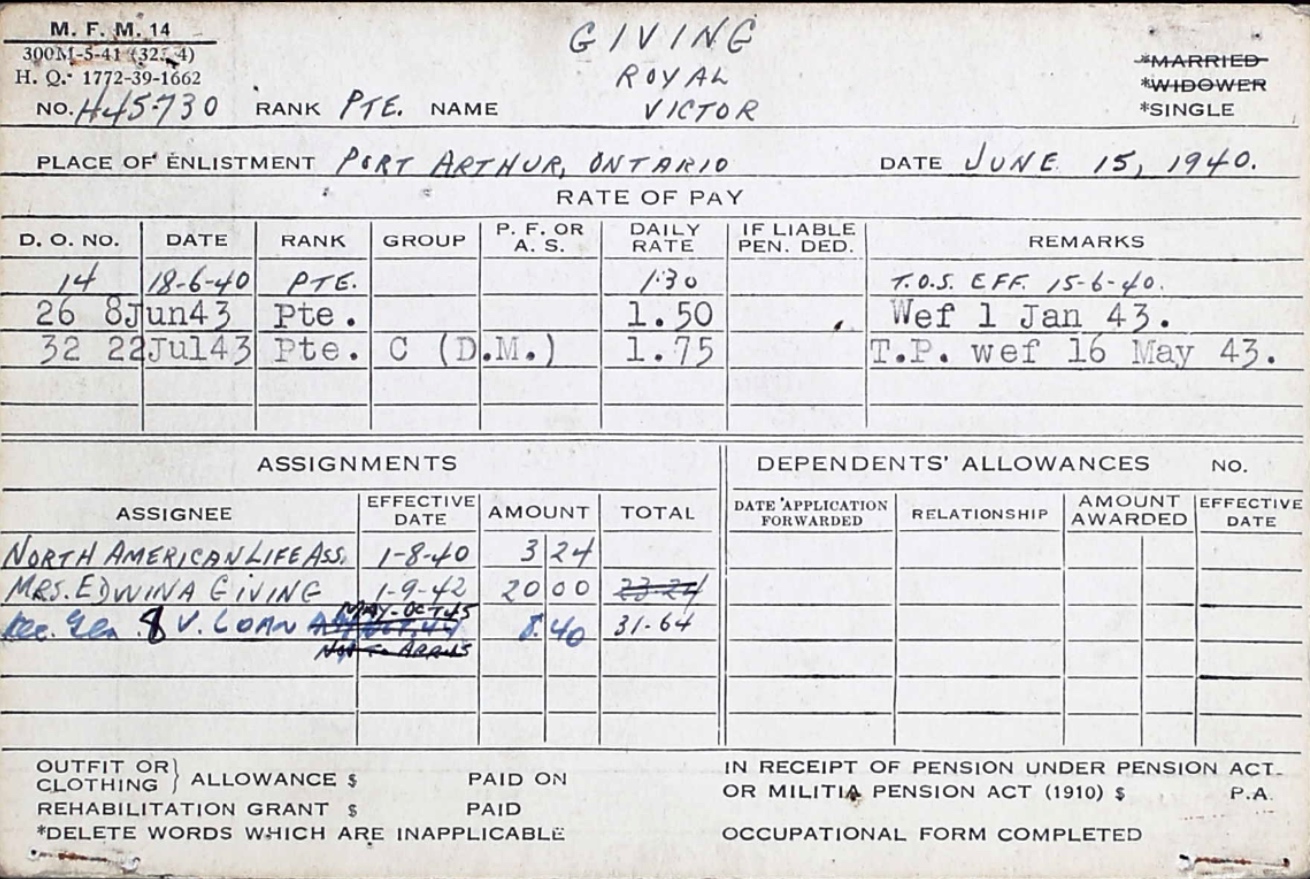 M. F. M. 14
300M-5-41 (32 4)
H. Q. 1772-39-1662
GIVING
ROYAL
VICTOR
*MARRIED
*WIDOWER
*SINGLE
NO. H45730 RANK PTE. NAME
PLACE OF ENLISTMENT PORT ARTHUR, ONTARIO DATE JUNE 15, 1940.
RATE OF PAY
D. O. NO. DATE RANK GROUP P. F. OR A. S. DAILY RATE IF LIABLE PEN. DED. REMARKS
14 18-6-40 PTE. 1.30 T.O.S. EFF. 15-6-40.
26 8Jun43 Pte. 1.50 Wef 1 Jan 43.
32 22Jul43 Pte. C (D.M.) 1.75 T.P. wef 16 May 43.
ASSIGNMENTS DEPENDENTS' ALLOWANCES NO.
ASSIGNEE EFFECTIVE DATE AMOUNT TOTAL DATE APPLICATION FORWARDED RELATIONSHIP AMOUNT AWARDED EFFECTIVE DATE
NORTH AMERICAN LIFE ASS. 1-8-40 3 24
MRS. EDWINA GIVING 1-9-42 20 00 23-24
Rec. Gen. 8 V. LOAN MAY-OCT 45 8.40 31-64
OUTFIT OR CLOTHING } ALLOWANCE $ PAID ON
REHABILITATION GRANT $ PAID
*DELETE WORDS WHICH ARE INAPPLICABLE
IN RECEIPT OF PENSION UNDER PENSION ACT
OR MILITIA PENSION ACT (1910) $ P.A.
OCCUPATIONAL FORM COMPLETED